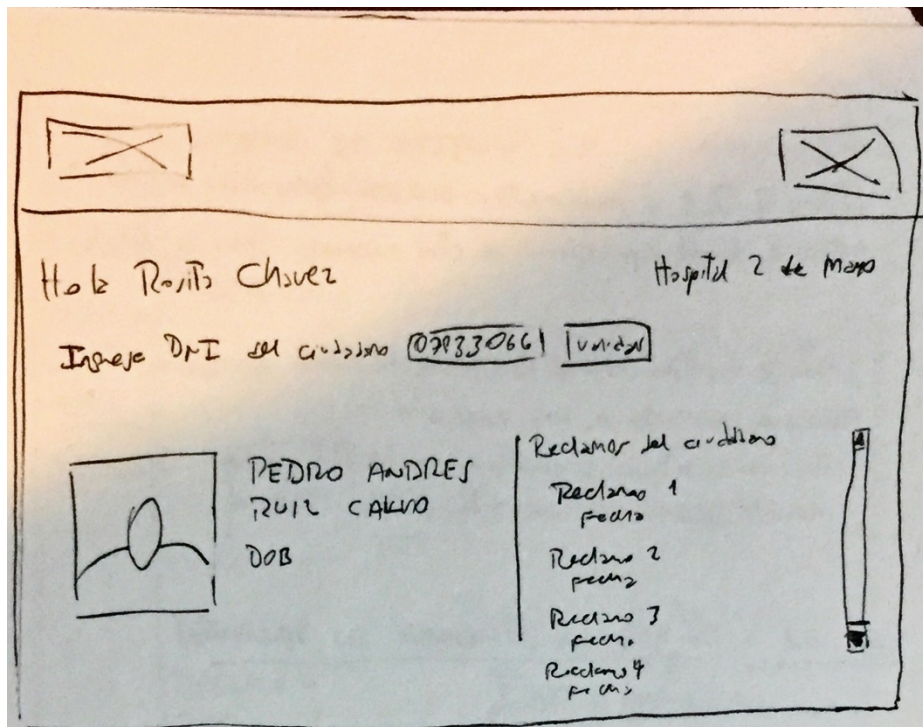 Hola Rosita Chavez
Hospital 2 de Mayo
Ingrese DNI del ciudadano 07933066 Validar
PEDRO ANDRES
RUIZ CALVO
DOB
Reclamos del ciudadano
Reclamo 1
fecha
Reclamo 2
fecha
Reclamo 3
fecha
Reclamo 4
fecha